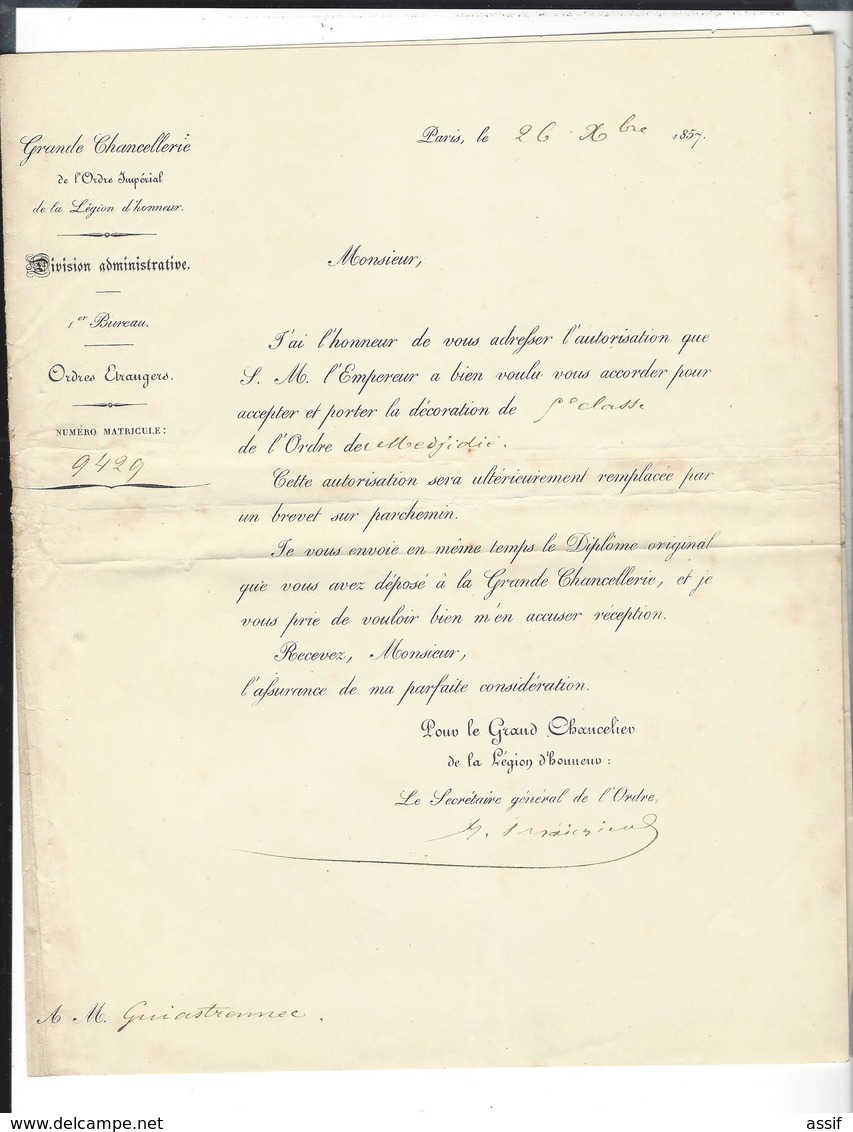 Grande Chancellerie
de l'Ordre Impérial
de la Légion d'honneur.
Division administrative.
1er Bureau.
Ordres Etrangers.
NUMÉRO MATRICULE:
9429
Paris, le 26 Xbre 1857.
Monsieur,
J'ai l'honneur de vous adresser l'autorisation que
S. M. l'Empereur a bien voulu vous accorder pour
accepter et porter la décoration de 5e classe
de l'Ordre de Medjidié.
Cette autorisation sera ultérieurement remplacée par
un brevet sur parchemin.
Je vous envoie en même temps le Diplôme original
que vous avez déposé à la Grande Chancellerie, et je
vous prie de vouloir bien m'en accuser réception.
Recevez, Monsieur,
l'assurance de ma parfaite considération.
Pour le Grand Chancelier
de la Légion d'honneur:
Le Secrétaire général de l'Ordre,
A M. Guiastrennec.
assif